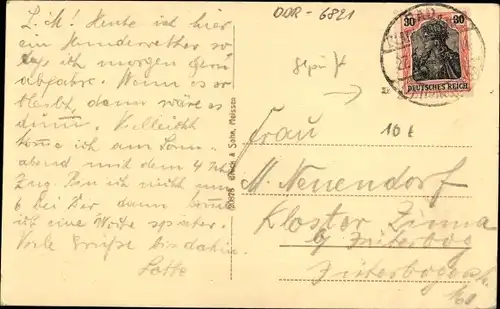 DDR-6821
L. M! Heute ist hier
ein Hunderwetter so
ich morgen
abfahre. Wenn es so
bleibt, dann wäre es
dumm. Vielleicht
komme ich am Sonn-
abend mit dem 4 Uhr
Zug. Bin ich nicht um
6 bei Dir dann komme
ich eine Woche später.
Viele Grüße bis dahin.
Lotte
Brück & Sohn, Meissen
geprüft
30 30
DEUTSCHES REICH
10 €
Frau
M. Neuendorf
Kloster Zinna
b/ Jüterbog